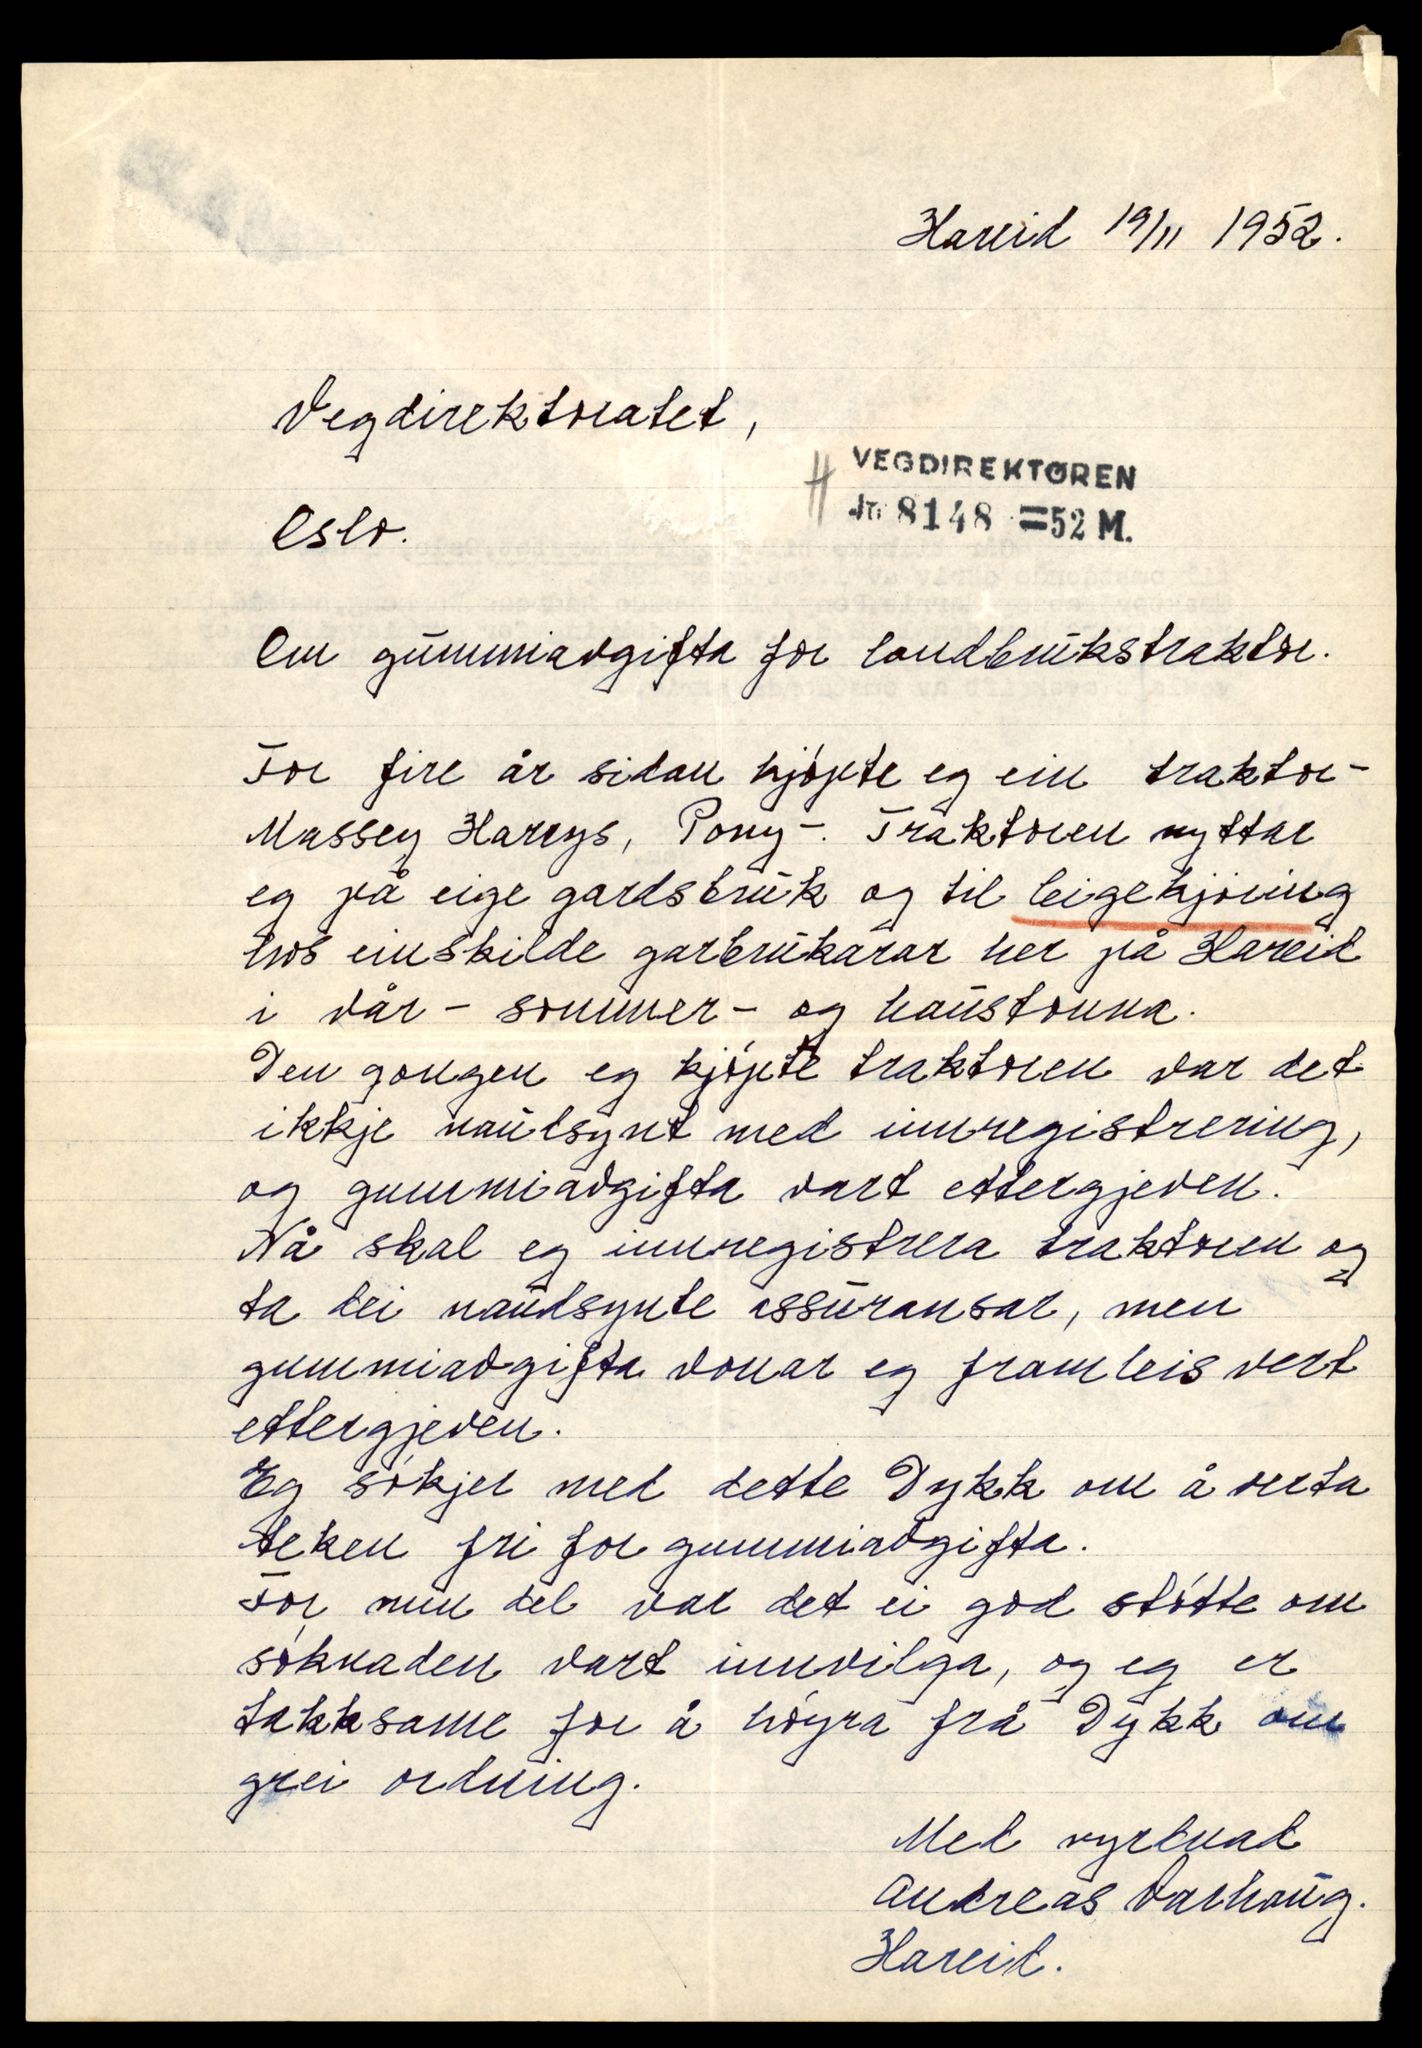 Hareid 19/11 1952.
Vegdirektoratet,
VEGDIREKTØREN
Jn 8148 = 52 M.
Oslo.
Om gummiavgifta for landbrukstraktor.
For fire år sidan kjøpte eg ein traktor-
Massey Harrys, Pony-. Traktoren nyttar
eg på eige gardsbruk og til leigekjøring
hos einskilde garbrukarar her på Hareid
i vår- sommer- og haustonna.
Den gongen eg kjøpte traktoren var det
ikkje naudsynt med innregistrering,
og gummiavgifta vart ettergjeven.
Nå skal eg innregistrera traktoren og
ta dei naudsynte assuransar, men
gummiavgifta vonar eg framleis vert
ettergjeven.
Eg søkjer med dette Dykk om å verta
teken fri for gummiavgifta.
For min del var det ei god støtte om
søknaden vart innvilga, og eg er
takksame for å høyra frå Dykk om
grei ordning.
Med vyrdnad
Andreas Varhaug.
Hareid.